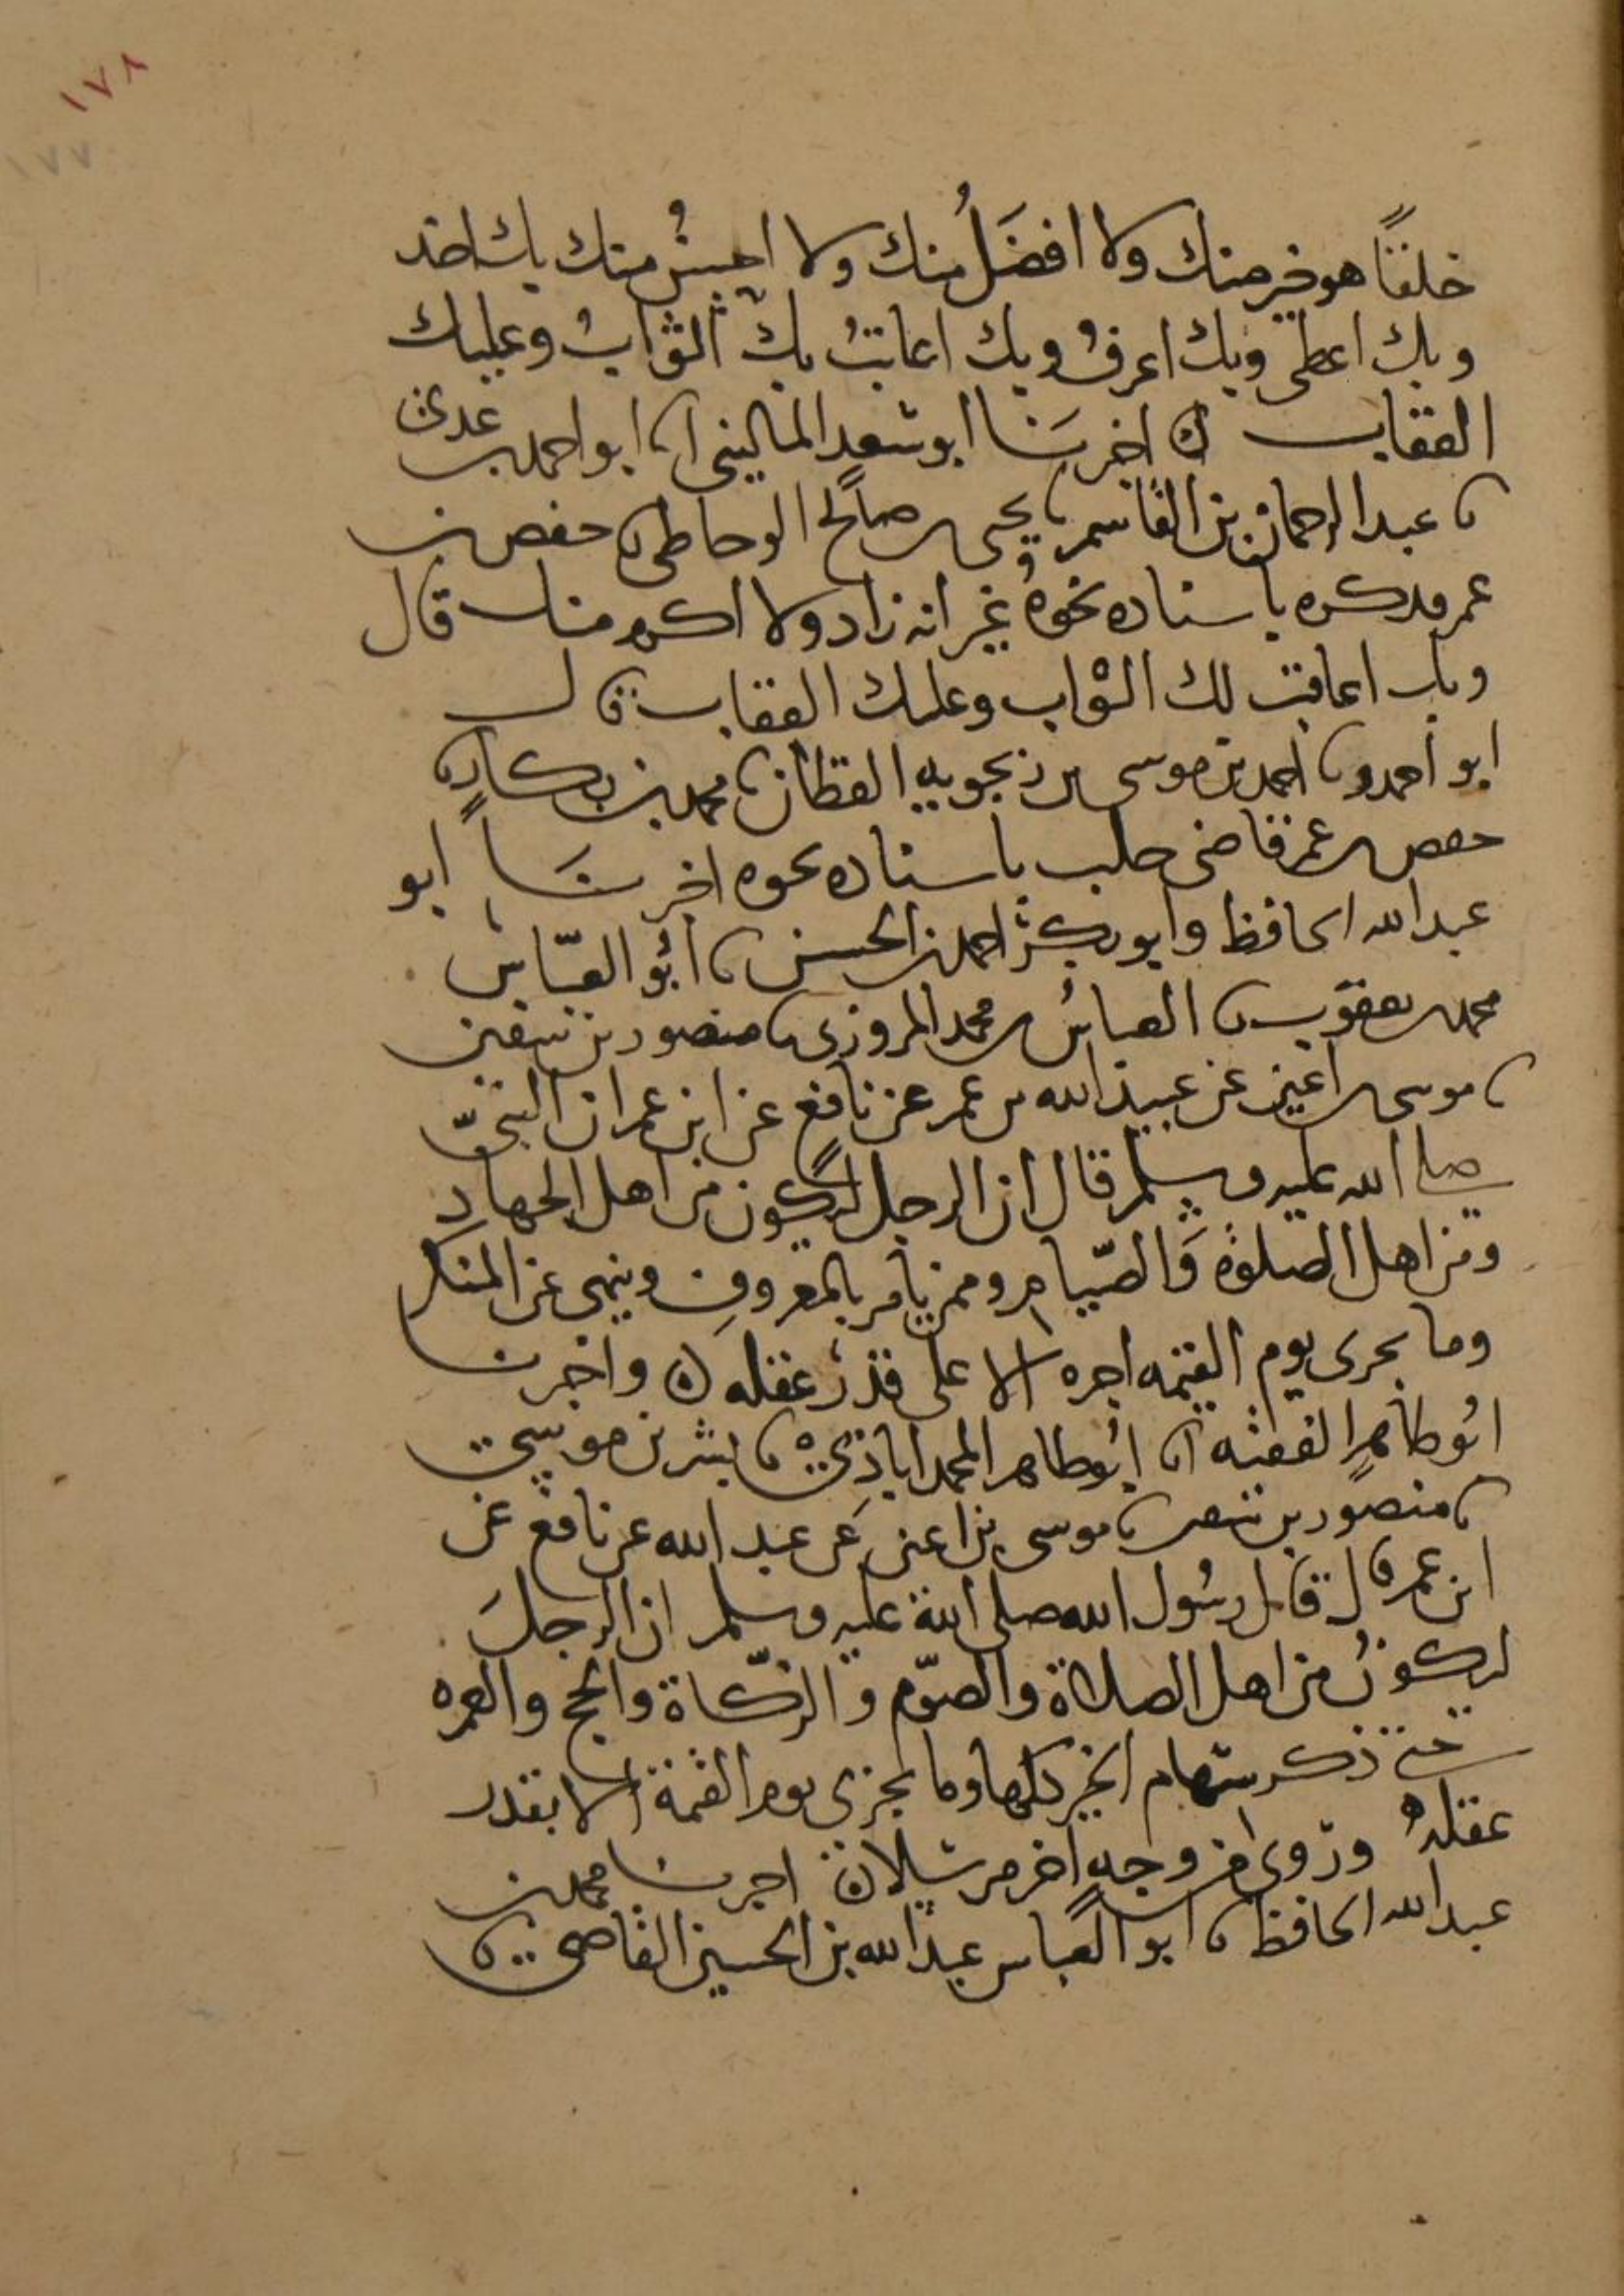 ١٧٨
١٧٧
خلقًا هو خير منك ولا افضَلُ منك ولا احسنُ منك بك اخذ
وبك اعطى وبك اعرفُ وبك اعاتبُ بك الثوابُ وعليك
العقاب ن اخبرنَا ابو سعد المالينى انا ابو احمد بن عدى
نا عبد الرحمان بن القاسم نا يحيى بن صالح الوحاظى نا حفص بن
عمر فذكره باسناده نحوهُ غير انه زاد ولا اكرم منك قال
وبك اعاقب لك الثواب وعليك العقاب قال
ابو احمد ونا احمد بن موسى بن زنجويه القطان نا محمد بن بكار نا
حفص بن عمر قاضى حلب باسناده نحوه اخبرنَا ابو
عبد الله الحافظ وابو بكر احمد بن الحسن نا ابُو العبّاس
محمد بن يعقوب نا العباسُ بن محمد المروزى نا منصور بن سقين
نا موسى بن اعين عن عبيد الله بن عمر عن نافع عن ابن عمر ان النبىّ
صلى الله عليه وسلم قال ان الرجل ليكون من اهل الجهاد
ومن اهل الصلوة وَالصّيام وممن يأمر بالمعروف وينهى عن المنكر
وما يجرى يوم القيمه اجره الا على قدر عقله ن واخبرنا
ابُو طاهرٍ الفقيه انا ابُو طاهر المحمداباذِى نا بشر بن موسى
نا منصور بن سقير نا موسى بن اعين عَن عبد الله عن نافع عن
ابن عمر قال قال رسُول الله صلى الله عليه وسلم ان الرجلَ
ليكونُ من اهل الصلاة والصوّم والزّكاة والحج والعمره
حتى ذكر سهام الخير كلها وما يجزى يوم القيمة الا بقدر
عقلهُ ورُوى من وجهٍ اخر مرسلا ن اخبرنا محمد بن
عبد الله الحافظ نا ابو العباس عبد الله بن الحسين القاضى نا